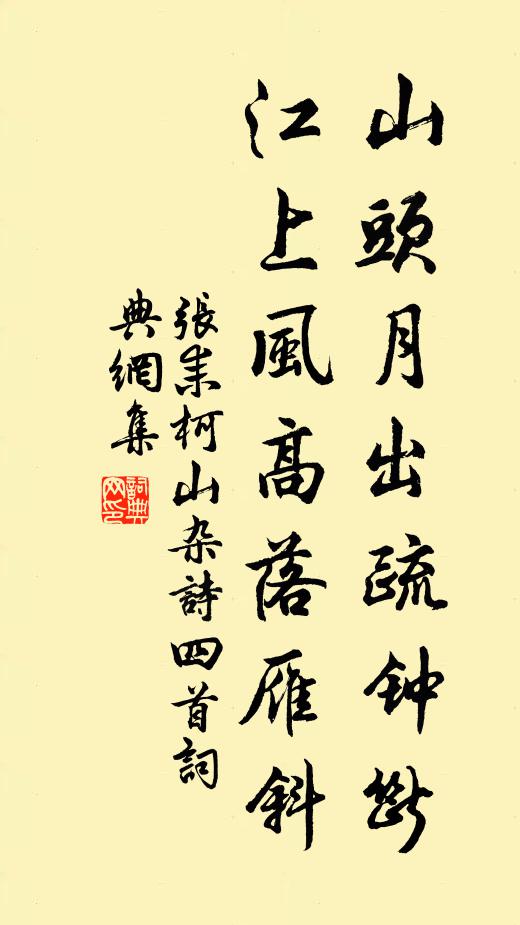 山頭月出疏钟斷
江上風高落雁斜
張耒柯山杂詩四首詞
典網集
詞典網印